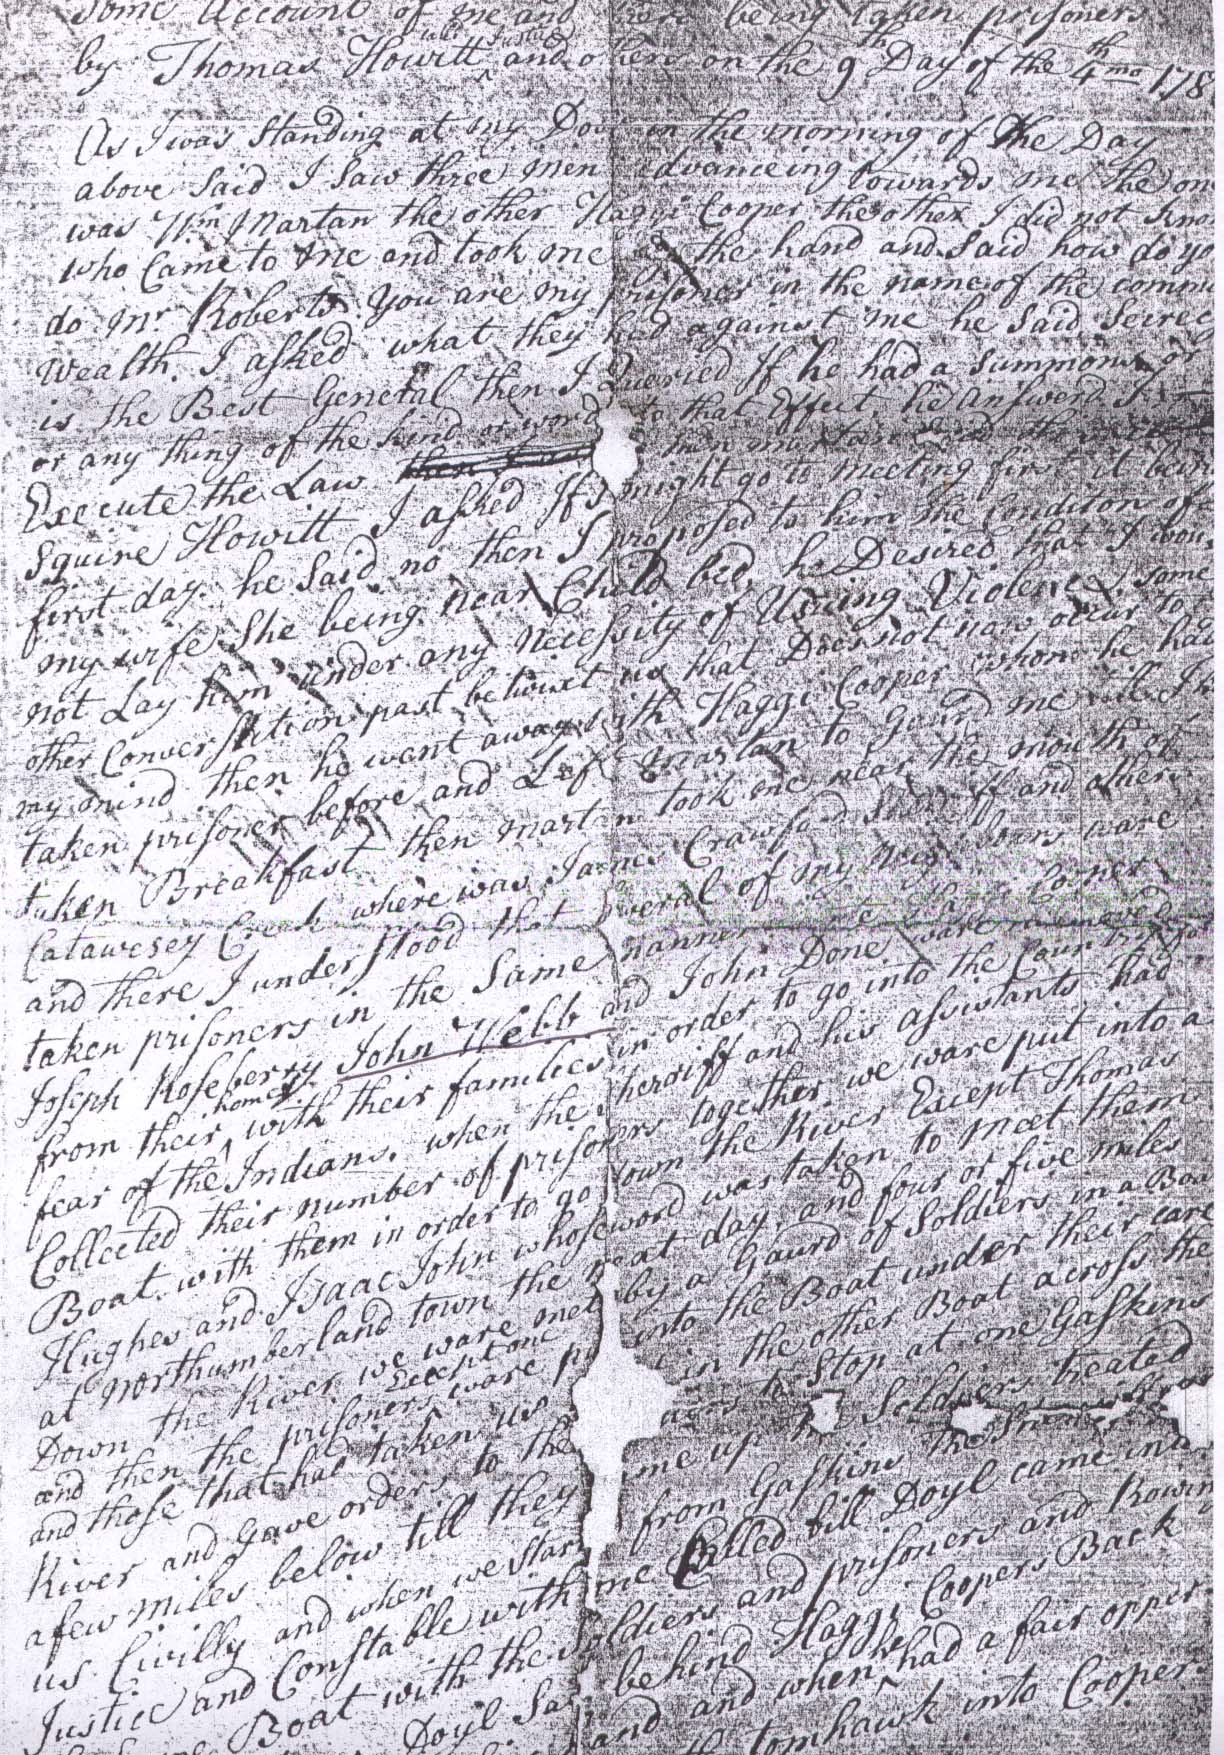 Some Account of me and being taken prisoners
by Thomas Howitt late Justice and others on the 9th Day of the 4th mo 178
As I was Standing at my Door in the morning of the Day
above Said I Saw three men advanceing towards me the one
was Wm Martan the other Haggi Cooper the other I did not know
who Came to me and took me by the hand and Said how do you
do Mr Roberts You are my prisoner in the name of the common
Wealth. I asked what they had against me he Said Secrecy
is the Best General then I Queried If he had a Summons or
or any thing of the kind or word to that Effect, he Answerd
Execute the Law then
Squire Howitt I asked If I might go to Meeting first it being
first day. he Said no then I proposed to him the Conditon of
my wife She being near Child bed, he Desired that I would
not Lay him under any necessity of Useing Violence & some
other Conversation past betwixt us that Does not now occur to
my mind then he went away with Haggi Cooper whom he had
taken prisoner before and Left Martan to Gaurd me till I
taken Breakfast then Martan took me near the mouth of
Catawesey Creek where was James Crawford Sheriff and others
and there I understood that Several of my Neighbours ware
taken prisoners in the Same manner
Joseph Roseberry John Webb and John Done ware removed
from their homes with their families in order to go into the Country for
fear of the Indians. when the Sherriff and his assistants had
Collected their number of prisoners together we ware put into a
Boat with them in order to go down the River Except Thomas
Hughes and Isaac John whose word was taken to meet them
at Northumberland town the next day, and four or five miles
Down the River we ware met by a Gaurd of Soldiers in a Boat
and then the prisoners Except me ware put into the Boat under their care
and those that had taken us in the other Boat across the
River and Gave orders to the to Stop at one Gaskins
a few miles below till they me up the Soldiers treated
us Civilly and when we Start from Gaskins the
Justice and Constable with me Called bill Doyl came in
Boat with the Soldiers and prisoners and Rowin
Doyl Sat behind Haggi Coopers Back
hand and when he had a fair opper
the tomhawk into Cooper